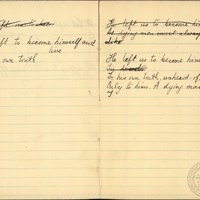 left to become himself and
live
own truth
He left us to become him
be dying men must always
He left us to become him
In his own truth, unheard of
Only to him. A dying man